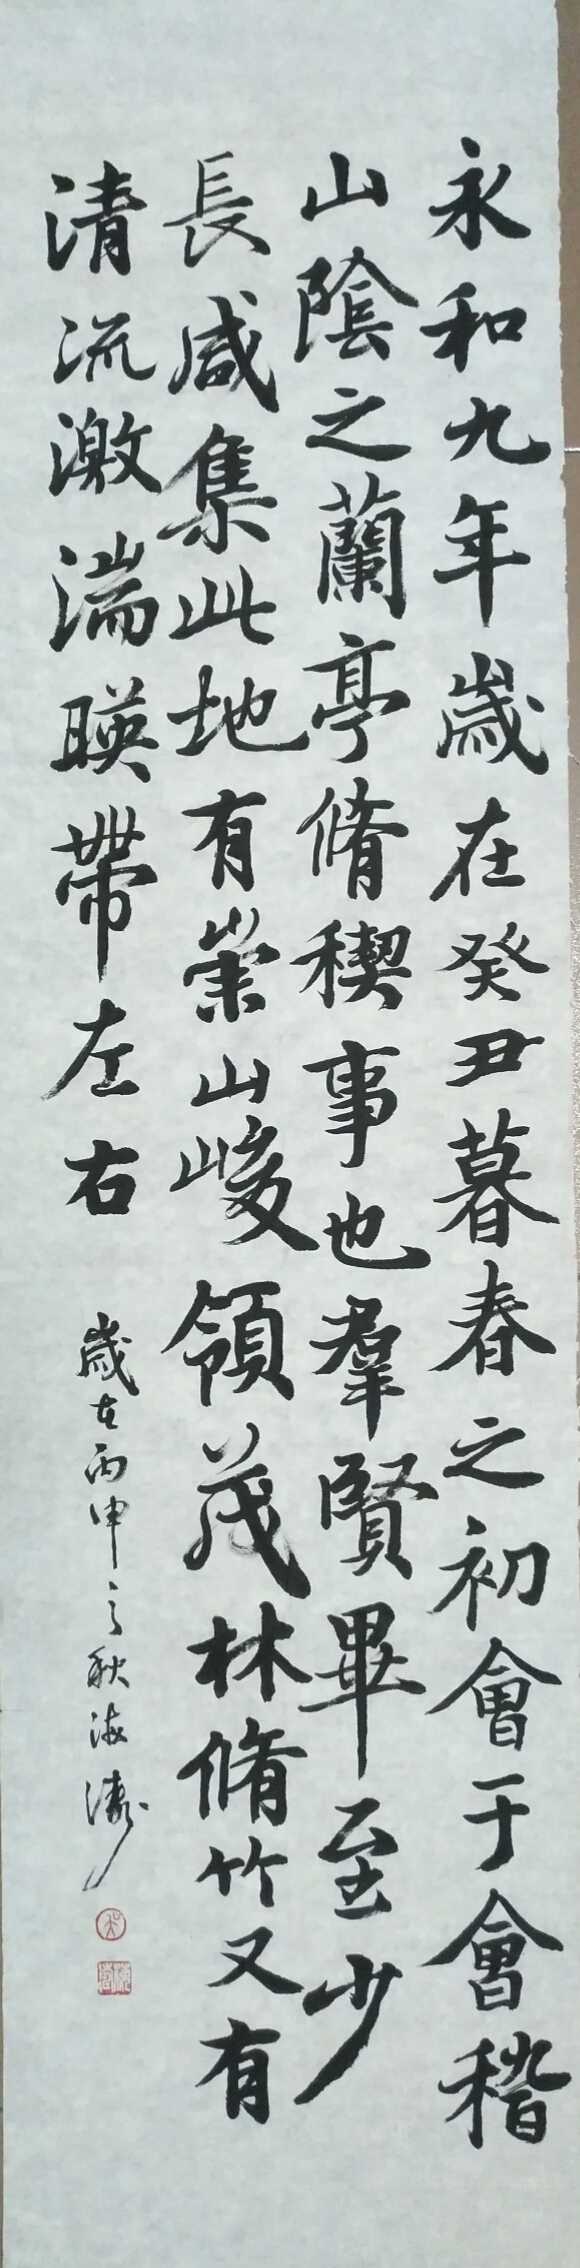 永和九年歲在癸丑暮春之初會于會稽
山陰之蘭亭脩稧事也羣賢畢至少
長咸集此地有崇山峻領茂林脩竹又有
清流激湍暎帶左右
歲在丙申之秋海濤